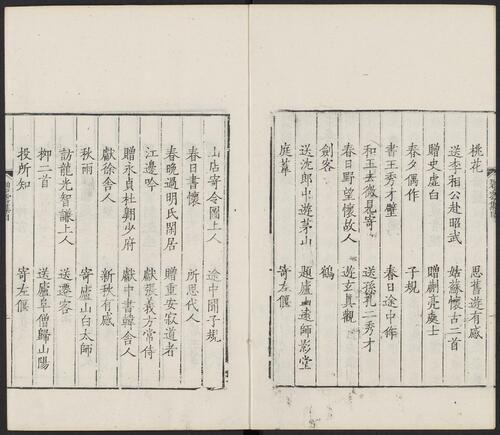 桃花　思舊遊有感
送李相公赴昭武　姑蘇懷古二首
贈史虛白　贈蒯亮處士
春夕偶作　子規
書王秀才壁　春日途中作
和王去微見寄　送孫孔二秀才
春日野望懷故人　遊玄真觀
劍客　鶴
送沈郎出遊茅山　題廬山遠師影堂
庭葦　寄左偃
山店寄令圖上人　途中聞子規
春日書懷　所思代人
春晚過明氏閑居　贈重安寂道者
江邊吟　獻張義方常侍
贈永貞杜翱少府　獻中書韓舍人
獻徐舍人　新秋有感
秋雨　寄廬山白太師
訪龍光智謙上人　送遷客
柳二首　送廬阜僧歸山陽
投所知　寄左偃